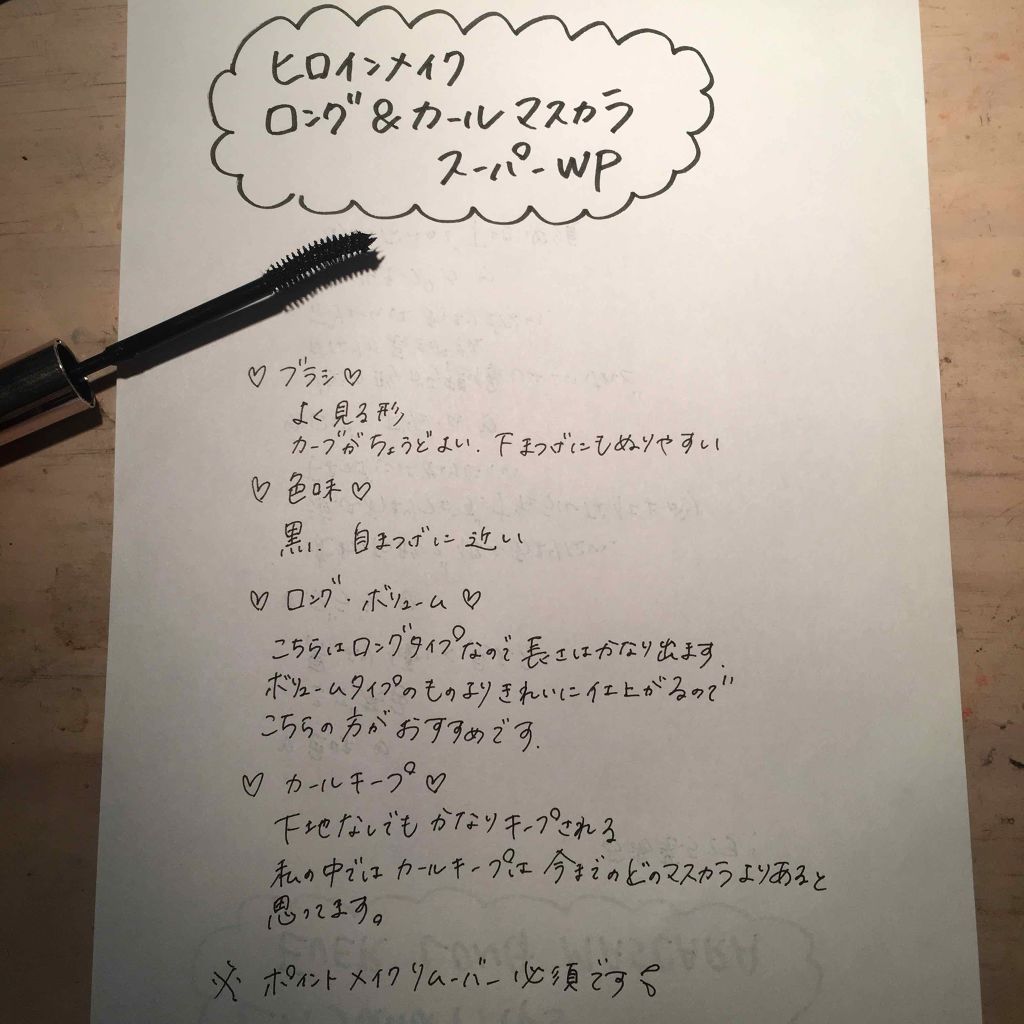 ヒロインメイク
ロング&カールマスカラ
スーパーWP
♡ ブラシ♡
よく見る形
カーブがちょうどよい.下まつげにもぬりやすい
♡ 色味 ♡
黒、自まつげに近い
♡ ロング・ボリューム ♡
こちらはロングタイプなので長さはかなり出ます.
ボリュームタイプのものよりきれいに仕上がるので
こちらの方がおすすめです.
♡ カールキープ♡
下地なしでもかなりキープされる
私の中ではカールキープは今までのどのマスカラよりあると
思ってます。
※ ポイントメイクリムーバー必須です